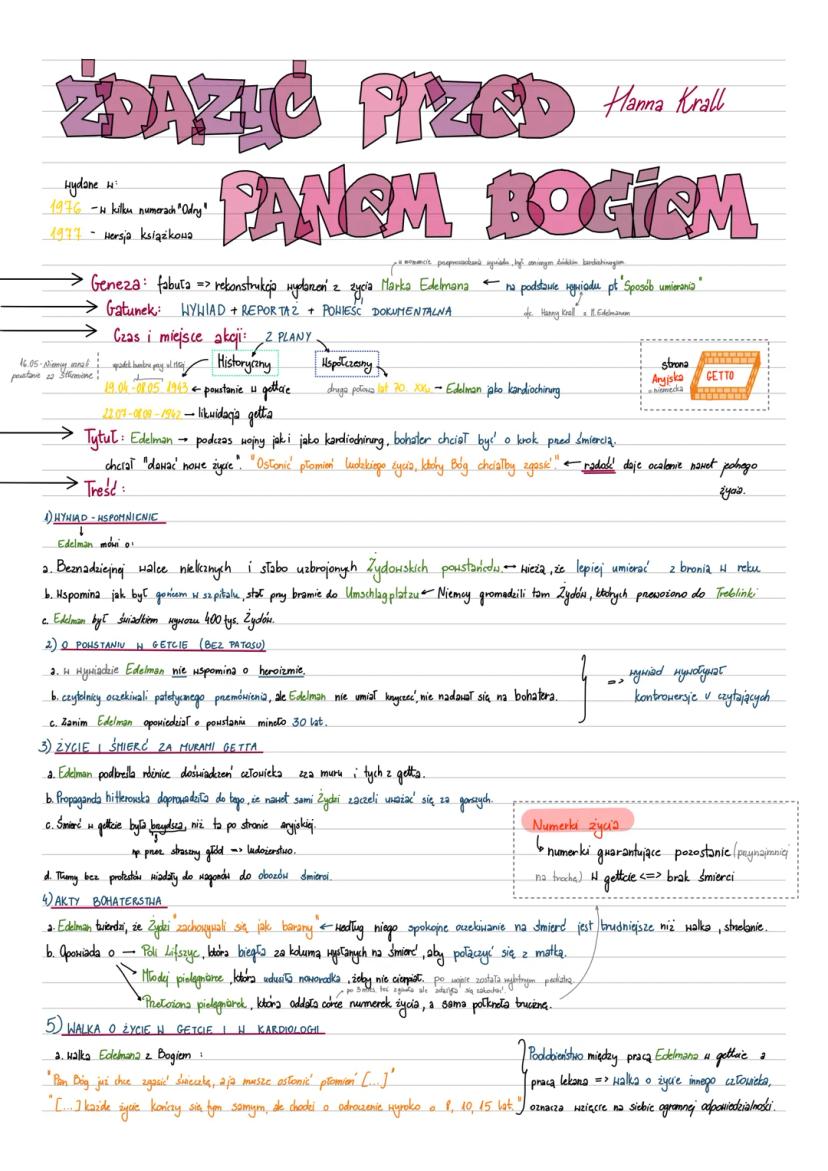 ŻDĄŻYĆ PRZED
Hanna Krall
PANEM BOGIEM
Wydane w:
1976 - w kilku numerach "Odry"
1977 - wersja książkowa
w momencie przeprowadzania wywiadu, był cenionym kardiochirurgiem
Geneza: fabuła => rekonstrukcja wydarzeń z życia Marka Edelmana ← na podstawie wywiadu pt "Sposób umierania"
Gatunek: WYWIAD + REPORTAŻ + POWIEŚĆ DOKUMENTALNA
Hanny Krall z M. Edelmanem
Czas i miejsce akcji: 2 PLANY
Historyczny
Współczesny
16.05 - Niemcy uznali powstanie za stłumione
19.04 - 08.05 1943 ← powstanie w getcie
druga połowa lat 70. XXw. → Edelman jako kardiochirurg
22.07 - 08.09 - 1942 → likwidacja getta
strona
Aryjska
niemiecka
GETTO
Tytuł: Edelman → podczas wojny jak i jako kardiochirurg, bohater chciał być o krok przed śmiercią.
chciał "dawać nowe życie". "Osłonić płomień ludzkiego życia, który Bóg chciałby zgasić." ← radość daje ocalenie nawet jednego
życia.
Treść:
1) WYWIAD - WSPOMNIENIE
Edelman mówi o:
a. Beznadziejnej walce nielicznych i słabo uzbrojonych Żydowskich powstańców. ← wierzą, że lepiej umierać z bronią w ręku
b. Wspomina jak był gońcem w szpitalu, stał przy bramie do Umschlagplatzu ← Niemcy gromadzili tam Żydów, których przewożono do Treblinki
c. Edelman był świadkiem wywozu 400 tys. Żydów.
2) O POWSTANIU W GETCIE (BEZ PATOSU)
a. w wywiadzie Edelman nie wspomina o heroizmie.
b. czytelnicy oczekiwali patetycznego przemówienia, ale Edelman nie umiał krzyczeć, nie nadawał się na bohatera.
c. Zanim Edelman opowiedział o powstaniu minęło 30 lat.
=> wywiad wywoływał
kontrowersje u czytających
3) ŻYCIE I ŚMIERĆ ZA MURAMI GETTA
a. Edelman podkreśla różnice doświadczeń człowieka zza muru i tych z getta.
b. Propaganda hitlerowska doprowadziła do tego, że nawet sami Żydzi zaczeli uważać się za gorszych.
c. Śmierć w getcie była brzydsza, niż ta po stronie aryjskiej.
np. przez straszny głód => ludożerstwo.
d. Tłumy bez protestów wsiadały do wagonów do obozów śmierci.
Numerki życia
numerki gwarantujące pozostanie (przynajmniej
na trochę) w getcie <=> brak śmierci
4) AKTY BOHATERSTWA
a. Edelman twierdzi, że Żydzi "zachowywali się jak barany" ← według niego spokojne oczekiwanie na śmierć jest trudniejsze niż walka, strzelanie.
b. Opowiada o → Poli Lifszyc, która biegła za kolumą wysłanych na śmierć, aby połączyć się z matką.
Młodej pielęgniarce, która udusiła noworodka, żeby nie cierpiał. po wojnie została wybitnym pediatrą.
po 3 mies. też zginęła ale zdążyła się zakochać
Przełożona pielęgniarek, która oddała córce numerek życia, a sama połknęła truciznę.
5) WALKA O ŻYCIE W GETCIE I W KARDIOLOGII
a. walka Edelmana z Bogiem:
"Pan Bóg już chce zgasić świeczkę, a ja muszę osłonić płomień [...]"
"[...] każde życie kończy się tym samym, ale chodzi o odroczenie wyroko o 8, 10, 15 lat."
Podobieństwo między pracą Edelmana w getcie a
pracą lekarza => walka o życie innego człowieka,
oznacza wzięcie na siebie ogromnej odpowiedzialności.